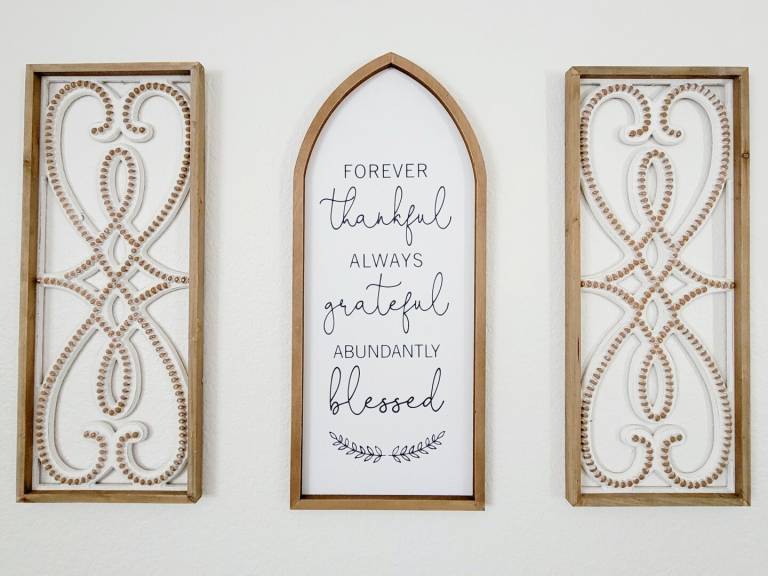 FOREVER
thankful
ALWAYS
grateful
ABUNDANTLY
blessed